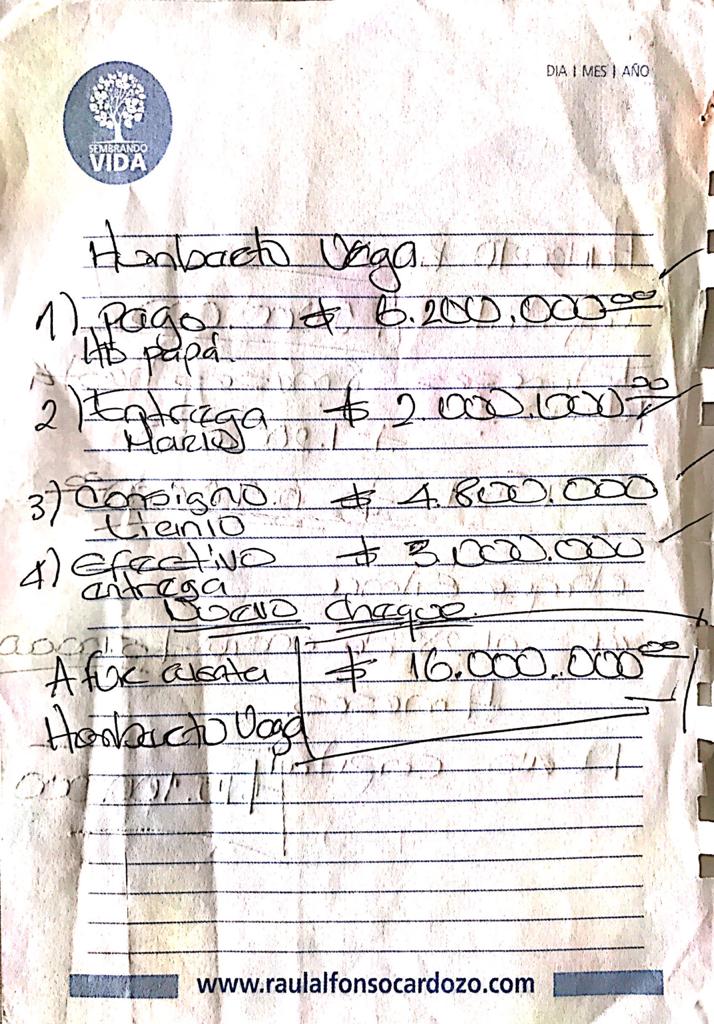 SEMBRANDO
VIDA
DIA | MES | AÑO
Humberto Vega
1) Pago $ 6.200.000 00
papá
2) Entrega $ 2.000.000 00
Mario
3) Consigno $ 4.800.000
4) Efectivo $ 3.000.000
entrega
Nuevo cheque
A $ 16.000.000 00
Humberto Vega
www.raulalfonsocardozo.com